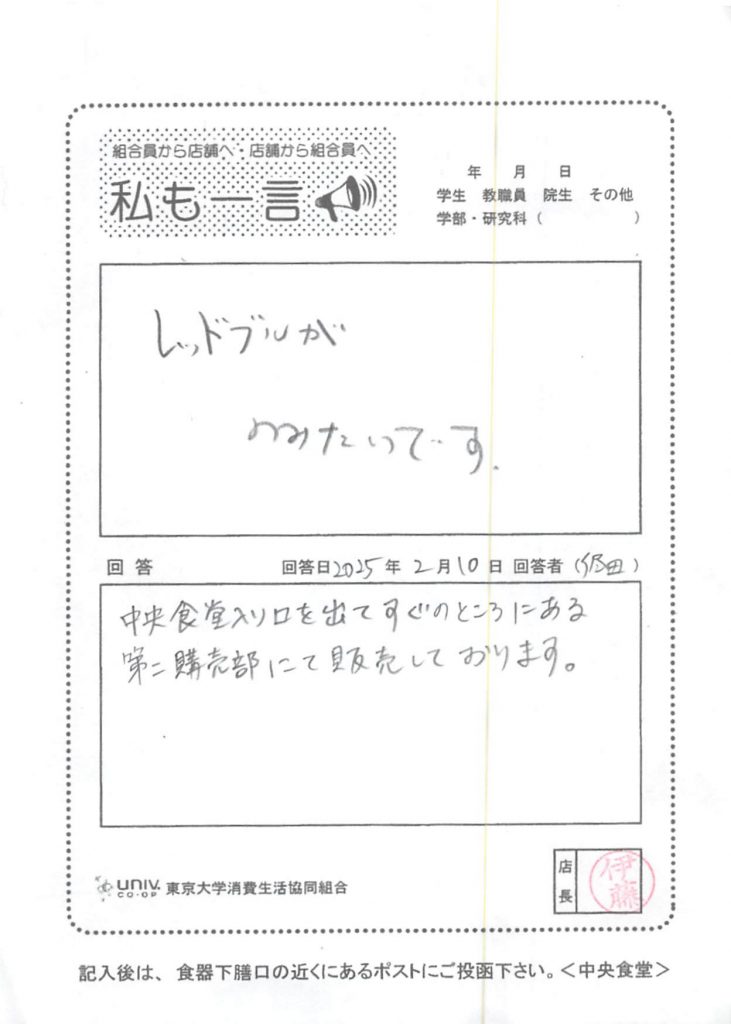 組合員から店舗へ・店舗から組合員へ
私も一言
年 月 日
学生 教職員 院生 その他
学部・研究科 ( )
レッドブルが
のみたいです.
回答 回答日2025年2月10日 回答者 ( 田)
中央食堂入り口を出てすぐのところにある
第二購売部にて販売しております。
UNIV. CO-OP 東京大学消費生活協同組合
店長
伊藤
記入後は、食器下膳口の近くにあるポストにご投函下さい。<中央食堂>